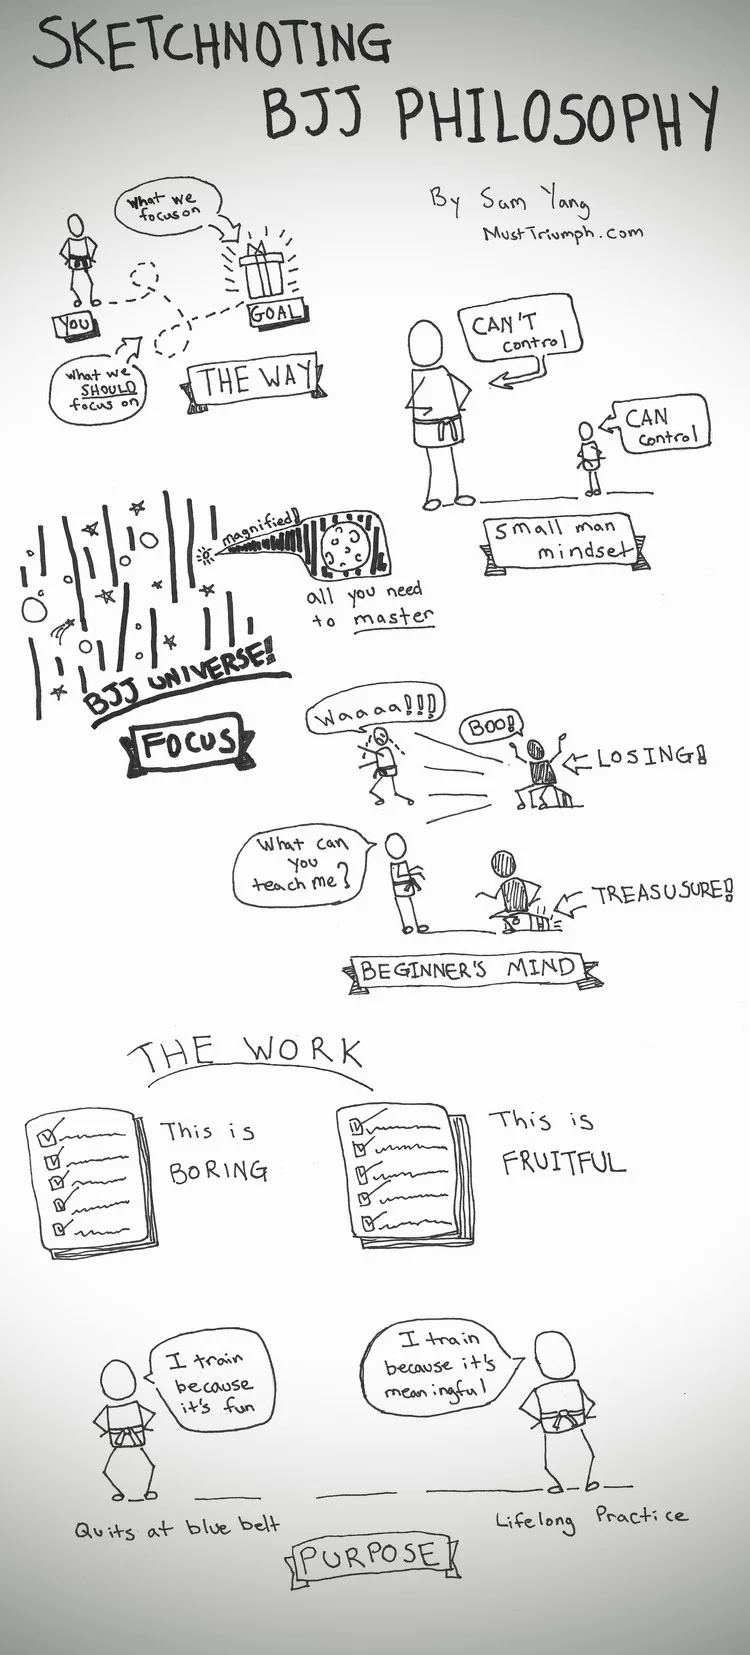 SKETCHNOTING
BJJ PHILOSOPHY
By Sam Yang
MustTriumph.com
What we
focus on
YOU
GOAL
What we
SHOULD
focus on
THE WAY
CAN'T
control
CAN
control
small man
mindset
magnified!
all you need
to master
BJJ UNIVERSE!
FOCUS
Waaaa!!!
BOO!
LOSING!
What can
you
teach me?
TREASUSURE!
BEGINNER'S MIND
THE WORK
This is
BORING
This is
FRUITFUL
I train
because
it's fun
I train
because it's
meaningful
Quits at blue belt
Lifelong Practice
PURPOSE